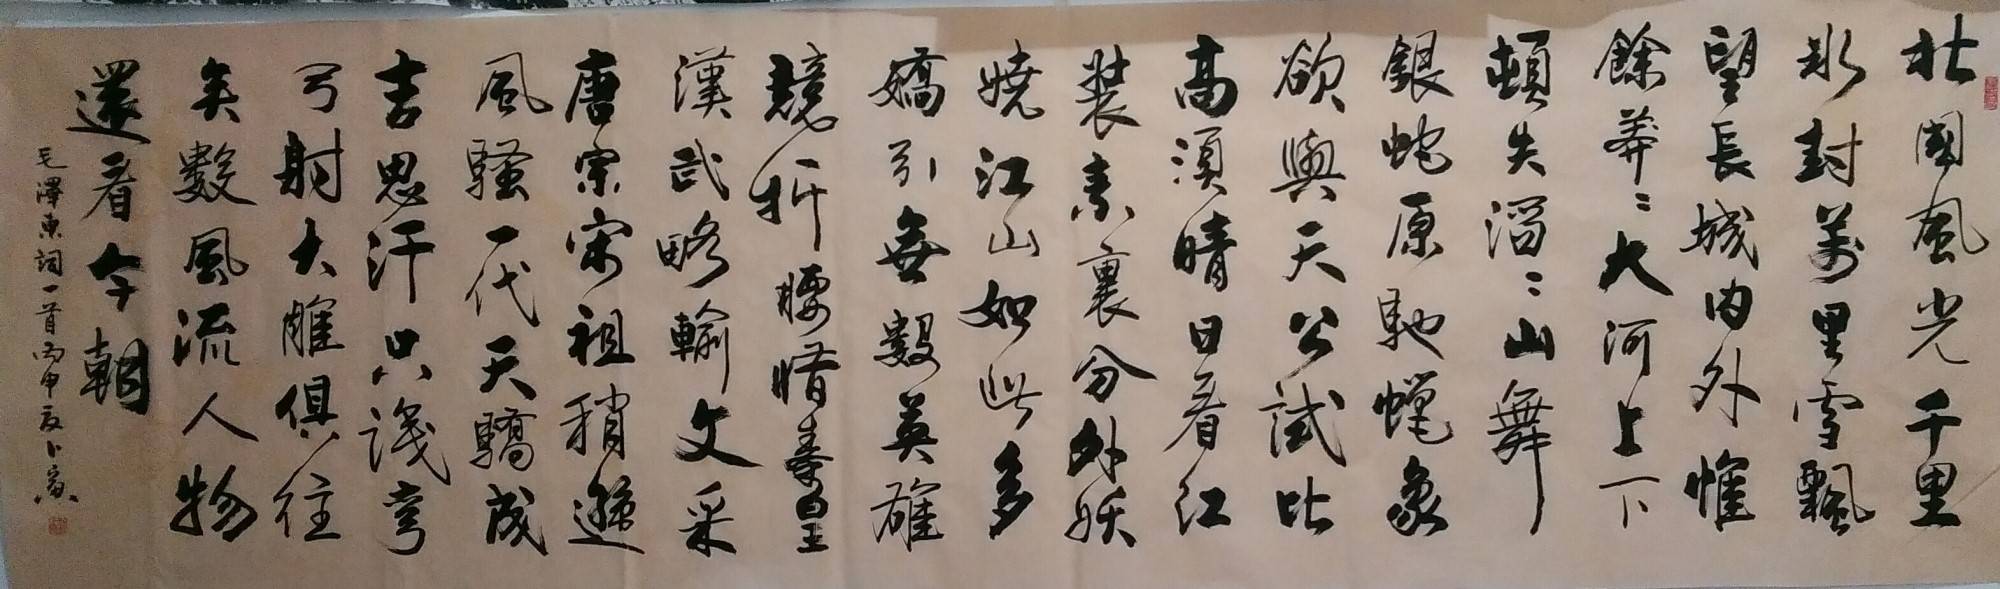 北國風光千里
冰封萬里雪飄
望長城内外惟
餘莽〻大河上下
頓失滔〻山舞
銀蛇原馳蠟象
欲與天公試比
高須晴日看红
裝素裹分外妖
嬈江山如此多
嬌引無數英雄
競折腰惜秦皇
漢武略輸文采
唐宗宋祖稍遜
風騷一代天驕成
吉思汗只識彎
弓射大雕俱往
矣數風流人物
還看今朝
毛澤東詞一首丙申夏卜